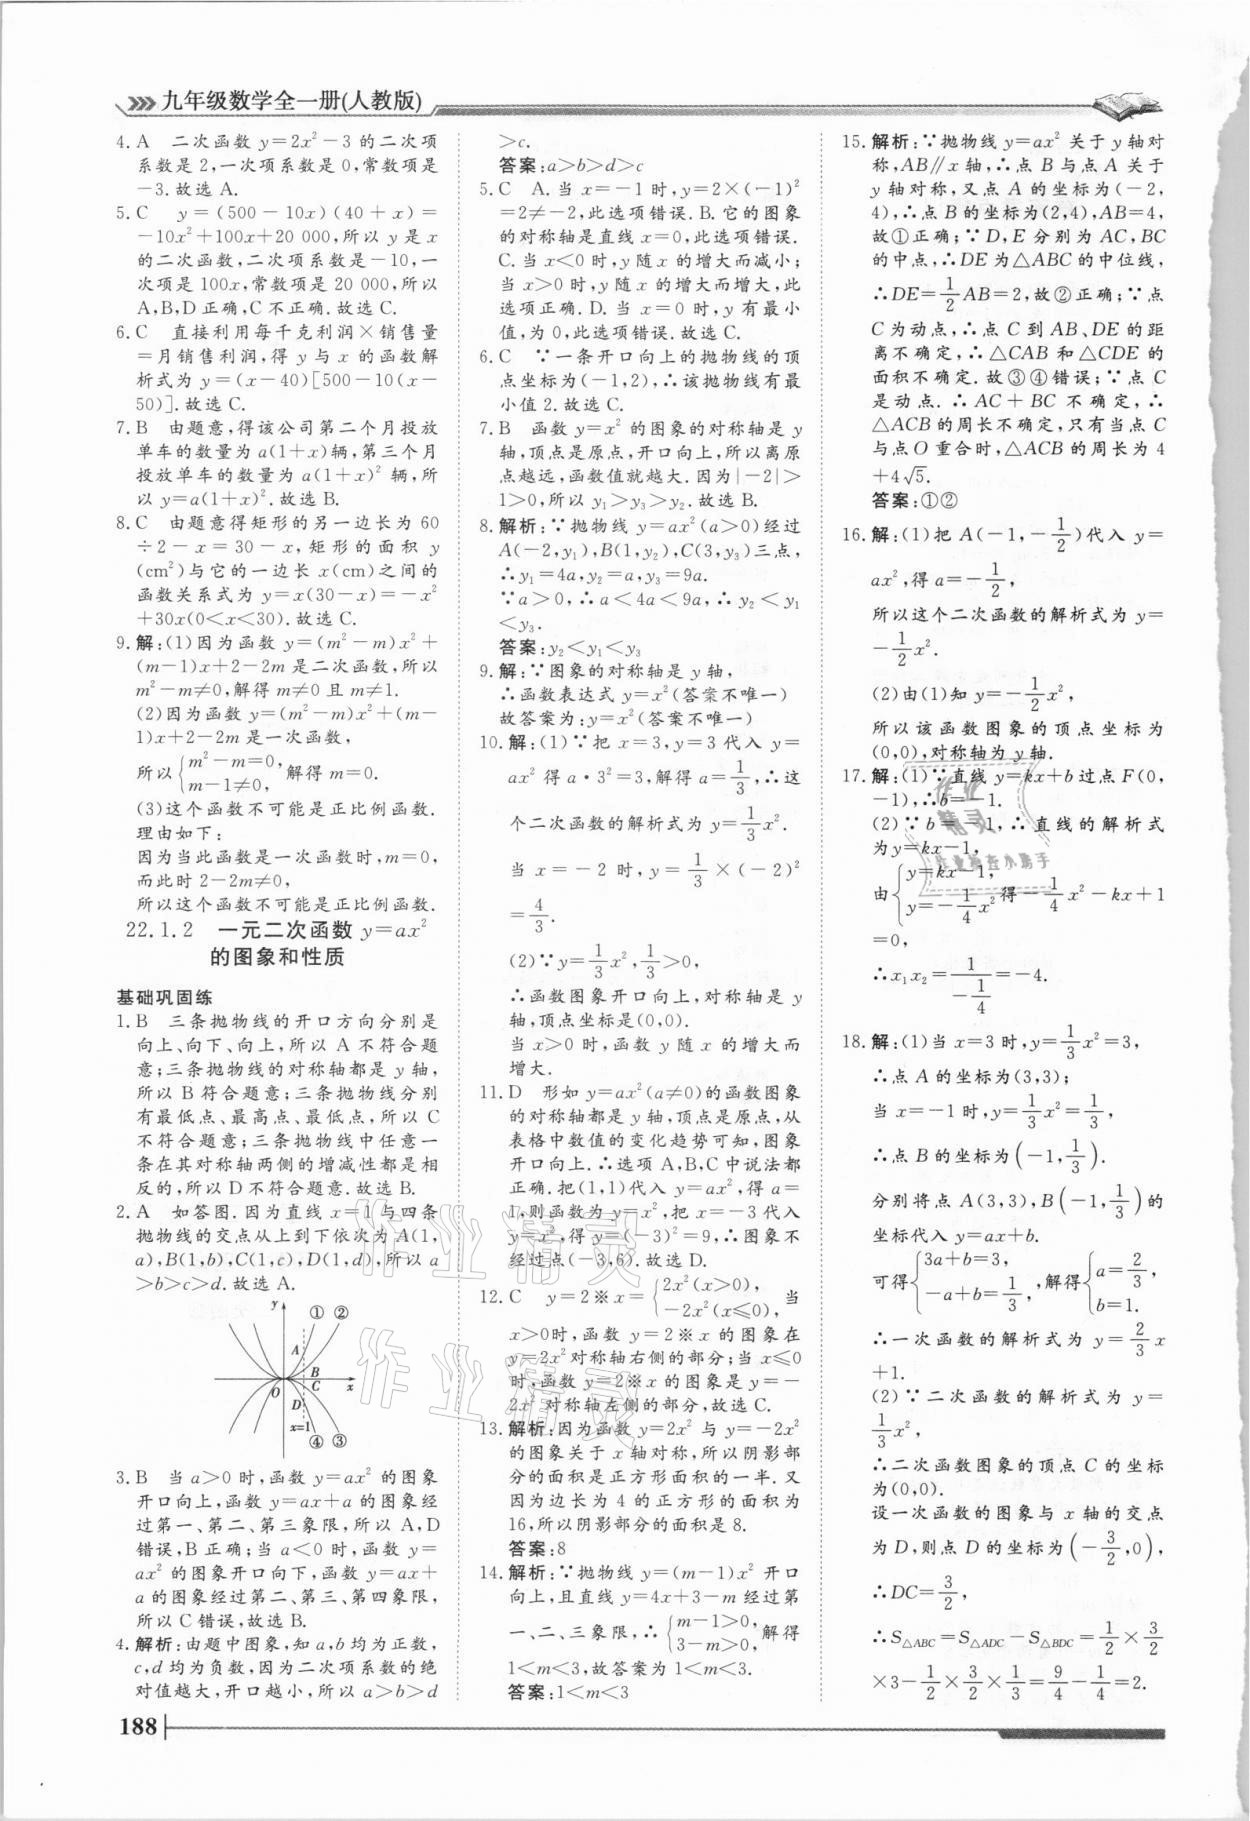 九年级数学全一册(人教版)
4. A 二次函数 y=2x²-3 的二次项
系数是 2,一次项系数是 0,常数项是
-3.故选 A.
5. C y=(500-10x)(40+x)=
-10x²+100x+20 000,所以 y 是 x
的二次函数,二次项系数是-10,一
次项是 100x,常数项是 20 000,所以
A,B,D 正确,C 不正确.故选 C.
6. C 直接利用每千克利润×销售量
=月销售利润,得 y 与 x 的函数解
析式为 y=(x-40)[500-10(x-
50)].故选 C.
7. B 由题意,得该公司第二个月投放
单车的数量为 a(1+x)辆,第三个月
投放单车的数量为 a(1+x)² 辆,所
以 y=a(1+x)².故选 B.
8. C 由题意得矩形的另一边长为 60
÷2-x=30-x,矩形的面积 y
(cm²)与它的一边长 x(cm)之间的
函数关系式为 y=x(30-x)=-x²
+30x(0<x<30).故选 C.
9. 解:(1)因为函数 y=(m²-m)x²+
(m-1)x+2-2m 是二次函数,所以
m²-m≠0,解得 m≠0 且 m≠1.
(2)因为函数 y=(m²-m)x²+(m-
1)x+2-2m 是一次函数,
所以{m²-m=0, m-1≠0, 解得 m=0.
(3)这个函数不可能是正比例函数.
理由如下:
因为当此函数是一次函数时,m=0,
而此时 2-2m≠0,
所以这个函数不可能是正比例函数.
22.1.2 一元二次函数 y=ax²
的图象和性质
基础巩固练
1. B 三条抛物线的开口方向分别是
向上、向下、向上,所以 A 不符合题
意;三条抛物线的对称轴都是 y 轴,
所以 B 符合题意;三条抛物线分别
有最低点、最高点、最低点,所以 C
不符合题意;三条抛物线中任意一
条在其对称轴两侧的增减性都是相
反的,所以 D 不符合题意.故选 B.
2. A 如答图.因为直线 x=1 与四条
抛物线的交点从上到下依次为 A(1,
a),B(1,b),C(1,c),D(1,d),所以 a
>b>c>d.故选 A.
y ① ②
A
B
O C x
D
x=1
④ ③
3. B 当 a>0 时,函数 y=ax² 的图象
开口向上,函数 y=ax+a 的图象经
过第一、第二、第三象限,所以 A,D
错误,B 正确;当 a<0 时,函数 y=
ax² 的图象开口向下,函数 y=ax+
a 的图象经过第二、第三、第四象限,
所以 C 错误,故选 B.
4. 解析:由题中图象,知 a,b 均为正数,
c,d 均为负数,因为二次项系数的绝
对值越大,开口越小,所以 a>b>d
>c.
答案:a>b>d>c
5. C A.当 x=-1 时,y=2×(-1)²
=2≠-2,此选项错误.B.它的图象
的对称轴是直线 x=0,此选项错误.
C.当 x<0 时,y 随 x 的增大而减小;
当 x>0 时,y 随 x 的增大而增大,此
选项正确.D.当 x=0 时,y 有最小
值,为 0,此选项错误.故选 C.
6. C ∵一条开口向上的抛物线的顶
点坐标为(-1,2),∴该抛物线有最
小值 2.故选 C.
7. B 函数 y=x² 的图象的对称轴是 y
轴,顶点是原点,开口向上,所以离原
点越远,函数值就越大.因为|-2|>
1>0,所以 y₁>y₃>y₂.故选 B.
8. 解析:∵抛物线 y=ax²(a>0)经过
A(-2,y₁),B(1,y₂),C(3,y₃)三点,
∴y₁=4a,y₂=a,y₃=9a.
∵a>0,∴a<4a<9a,∴y₂<y₁
<y₃.
答案:y₂<y₁<y₃
9. 解:∵图象的对称轴是 y 轴,
∴函数表达式 y=x²(答案不唯一)
故答案为:y=x²(答案不唯一)
10. 解:(1)∵把 x=3,y=3 代入 y=
ax² 得 a·3²=3,解得 a=1/3,∴这
个二次函数的解析式为 y=1/3x².
当 x=-2 时,y=1/3×(-2)²
=4/3.
(2)∵y=1/3x²,1/3>0,
∴函数图象开口向上,对称轴是 y
轴,顶点坐标是(0,0).
当 x>0 时,函数 y 随 x 的增大而
增大.
11. D 形如 y=ax²(a≠0)的函数图象
的对称轴都是 y 轴,顶点是原点,从
表格中数值的变化趋势可知,图象
开口向上.∴选项 A,B,C 中说法都
正确.把(1,1)代入 y=ax²,得 a=
1,则函数为 y=x²,把 x=-3 代入
y=x²,得 y=(-3)²=9,∴图象不
经过点(-3,6).故选 D.
12. C y=2※x={2x²(x>0), -2x²(x≤0), 当
x>0时,函数 y=2※x 的图象在
y=2x² 对称轴右侧的部分;当 x≤0
时,函数 y=2※x 的图象是 y=-
2x² 对称轴左侧的部分,故选 C.
13. 解析:因为函数 y=2x² 与 y=-2x²
的图象关于 x 轴对称,所以阴影部
分的面积是正方形面积的一半.又
因为边长为 4 的正方形的面积为
16,所以阴影部分的面积是 8.
答案:8
14. 解析:∵抛物线 y=(m-1)x² 开口
向上,且直线 y=4x+3-m 经过第
一、二、三象限,∴{m-1>0, 3-m>0, 解得
1<m<3,故答案为 1<m<3.
答案:1<m<3
15. 解析:∵抛物线 y=ax² 关于 y轴对
称,AB∥x 轴,∴点 B 与点 A 关于
y 轴对称,又点 A 的坐标为(-2,
4),∴点 B 的坐标为(2,4),AB=4,
故①正确;∵D,E 分别为 AC,BC
的中点,∴DE 为△ABC 的中位线,
∴DE=1/2AB=2,故②正确;∵点
C 为动点,∴点 C 到 AB、DE 的距
离不确定,∴△CAB 和△CDE 的
面积不确定.故③④错误;∵点 C
是动点.∴AC+BC 不确定,∴
△ACB 的周长不确定,只有当点 C
与点 O 重合时,△ACB 的周长为 4
+4√5.
答案:①②
16. 解:(1)把 A(-1,-1/2)代入 y=
ax²,得 a=-1/2,
所以这个二次函数的解析式为 y=
-1/2x².
(2)由(1)知 y=-1/2x²,
所以该函数图象的顶点坐标为
(0,0),对称轴为 y 轴.
17. 解:(1)∵直线 y=kx+b 过点 F(0,
-1),∴b=-1.
(2)∵b=-1,∴直线的解析式
为 y=kx-1,
由{y=kx-1, y=-1/4x² 得-1/4x²-kx+1
=0,
∴x₁x₂=1/(-1/4)=-4.
18. 解:(1)当 x=3 时,y=1/3x²=3,
∴点 A 的坐标为(3,3);
当 x=-1 时,y=1/3x²=1/3,
∴点 B 的坐标为(-1,1/3).
分别将点 A(3,3),B(-1,1/3)的
坐标代入 y=ax+b.
可得{3a+b=3, -a+b=1/3, 解得{a=2/3, b=1.
∴一次函数的解析式为 y=2/3x
+1.
(2)∵二次函数的解析式为 y=
1/3x²,
∴二次函数图象的顶点 C 的坐标
为(0,0).
设一次函数的图象与 x 轴的交点
为 D,则点 D 的坐标为(-3/2,0),
∴DC=3/2,
∴S△ABC=S△ADC-S△BDC=1/2×3/2
×3-1/2×3/2×1/3=9/4-1/4=2.
188
作业精灵
作业精灵
作业
精灵
作业检查小助手